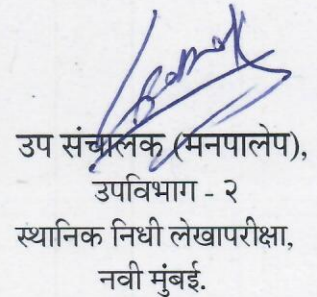 उप संचालक (मनपालेप),
उपविभाग - २
स्थानिक निधी लेखापरीक्षा,
नवी मुंबई.